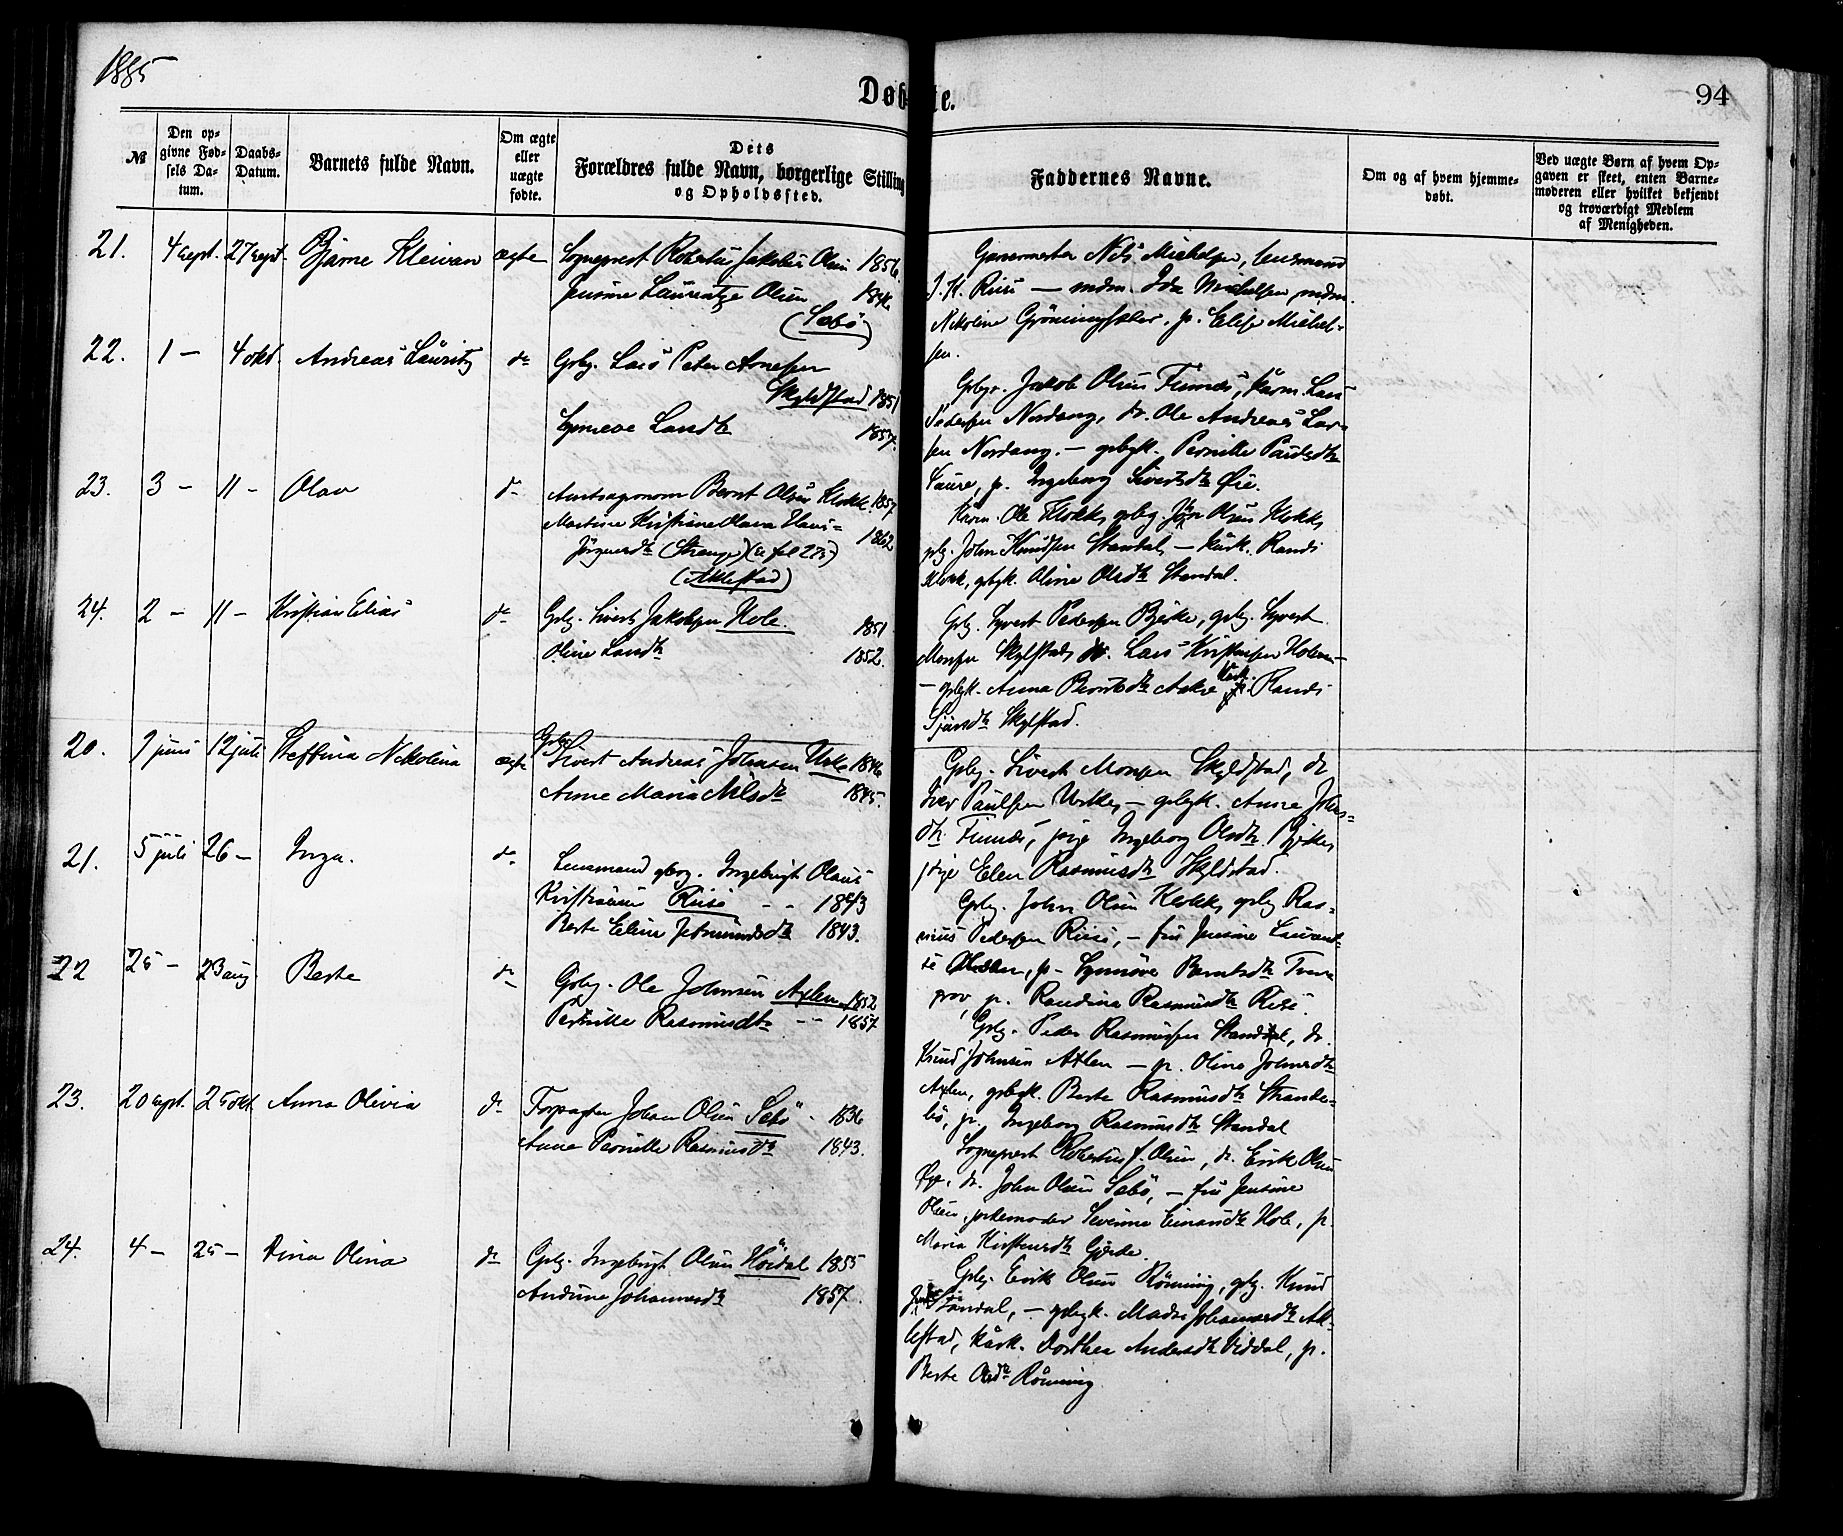 1885
Døbte.
94
№
Den opgivne Fødsels Datum.
Daabs-Datum.
Barnets fulde Navn.
Om ægte eller uægte fødte.
Dets Forældres fulde Navn, borgerlige Stilling og Opholdssted.
Faddernes Navne.
Om og af hvem hjemmedøbt.
Ved uægte Børn af hvem Opgaven er skeet, enten Barnemoderen eller hvilket bekjendt og troværdigt Medlem af Menigheden.
21. 4 sept. 27 sept. Bjarne Kleivan ægte Sogneprest Robertus Jakobus Olsen 1856
Jensine Laurentze Olsen
(Sæbö)
Nils Michelsen, lensmand
J. K. Riise — Ida Michelsen
Nikoline Gröningsæter, p. Elise Michel-
sen.
22. 1 — 4 okt. Andreas Lauritz do Gbg. Lars Peter Arnesen
Skyldstad 1851
Synneve Larsdtr 1857.
Gbg. Jakob Olsen Funes, kårm. Lars
Pedersen Nordang, do. Ole Andreas Lar-
sen Nordang. — gbgk. Pernille Paulsdtr
Saure, p. Ingeborg Sivertsdtr Øie.
23. 3 — 11 — Olav do Amtsagronom Bernt Olsen Klokk. 1857
Martine Kristiane Olava Hans-
Jörgensdtr (Strange) 1862
(Aklestad)
Kårm. Ole Klokk, gbg. Jon Olsen Klokk,
gbg. John Knudsen Standal, — kårk. Randi
Klokk, gbgk. Oline Olsdtr Standal.
24. 2 — 11 — Kristian Elias do Gbg. Sivert Jakobsen Hole. 1851
Oline Larsdtr 1852.
Gbg. Syvert Pedersen Bjerke, gbg. Syvert
Monsen Skylstad, do. Lars Kristensen Holen —
— gbgk. Anna Berntsdtr Aakre Randi
Sjursdtr Skylstad.
20. 7 juni 12 juli Steffina Nikolina ægte Gbg. Sivert Andreas Johnsen Urke 1846
Anne Maria Nilsdtr 1845.
Gbg. Sivert Monsen Skyldstad, do
Iver Paulsen Urke, — gbgk. Anne Johns-
dtr. Funes, pige Ingeborg Olsdtr Bjerke,
pige Elen Rasmusdtr Skyldstad.
21. 5 juli 26 — Inga. do Lensmand gbrg. Ingebrigt Olaus
Kristiansen Riise 1843
Berte Eline Jetmundsdtr 1843.
Gbg. John Olsen Klokk, gbg Ras-
mus Pedersen Riise, — fru Jensine Laurent-
se Olsen, p. Synnöve Berntsdtr
p. Randina Rasmusdtr Riise.
22 25 — 23 aug Berte do Gbg. Ole Johnsen Axlen 1852
Pernille Rasmusdtr 1857
Gbg. Peder Rasmussen Standal, do.
Knud Johnsen Axlen — p. Oline Johnsdtr
Axlen, gbgk. Berte Rasmusdtr Strande-
bö, p. Ingeborg Rasmusdtr Standal
23. 20 sept. 25 okt. Anna Olivia do Forpagter Johan Olsen Sæbö 1836
Anne Pernille Rasmusdtr 1843.
Sogneprest Robertus J. Olsen, do. Erik Olsen
Øye, do. John Olsen Sæbö, — fru Jensine
Olsen, jordemoder Severine Einarsdtr Hole, p.
Maria Kirstensdtr Gjerde.
24. 4 — 25 — Dina Olina do Gbg. Ingebrigt Olsen Høidal 1855
Andrine Johannesdtr 1857.
Gbg. Erik Olsen Rönning, gbg. Knud
Standal, — gbgk. Madsi Johannesdtr Ak-
lestad, kårk. Dorthea Andersdtr Viddal, p.
Berte Olsdtr Rönning